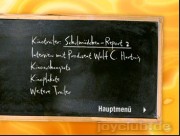 Kinotrailer: Schulmädchen-Report 2
Interview mit Produzent Wolf C. Hartwig
Kinoaushangfotos
Kinoplakate
Weitere Trailer
Hauptmenü
joyclub.de